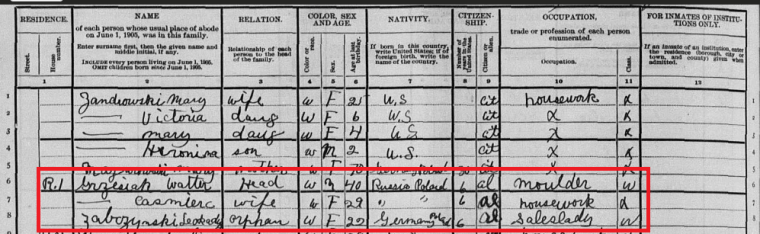 RESIDENCE. NAME RELATION. COLOR, SEX AND AGE. NATIVITY. CITIZEN-SHIP. OCCUPATION, FOR INMATES OF INSTITUTIONS ONLY.
Street. House number. of each person whose usual place of abode on June 1, 1905, was in this family. Relationship of each person to the head of the family. Color or race. Sex. Age at last birthday. If born in this country, write United States; if of foreign birth, write the name of the country. Number of years in the United States. Citizen or alien. trade or profession of each person enumerated.
Enter surname first, then the given name and middle initial, if any.
INCLUDE every person living on June 1, 1905. OMIT children born since June 1, 1905.
Occupation. Class. If an inmate of an institution, enter the residence through city or town, and county given when admitted.
2 3 4 5 6 7 8 9 10 11 12
1 Jandrowski Mary wife W F 25 U.S cit housework X
2 — Victoria daug W F 6 U.S cit X X
3 — Mary daug W F 4 U.S cit X X
4 — son W M 2 U.S. cit X X
5
6 R.1 Grzesiak Walter Head W M 40 Russia Poland 6 al moulder W
7 — Casmierc wife W F 29 " " 6 al housework X
8 Zabczynski orphan W F 22 Germany 6 al saleslady W